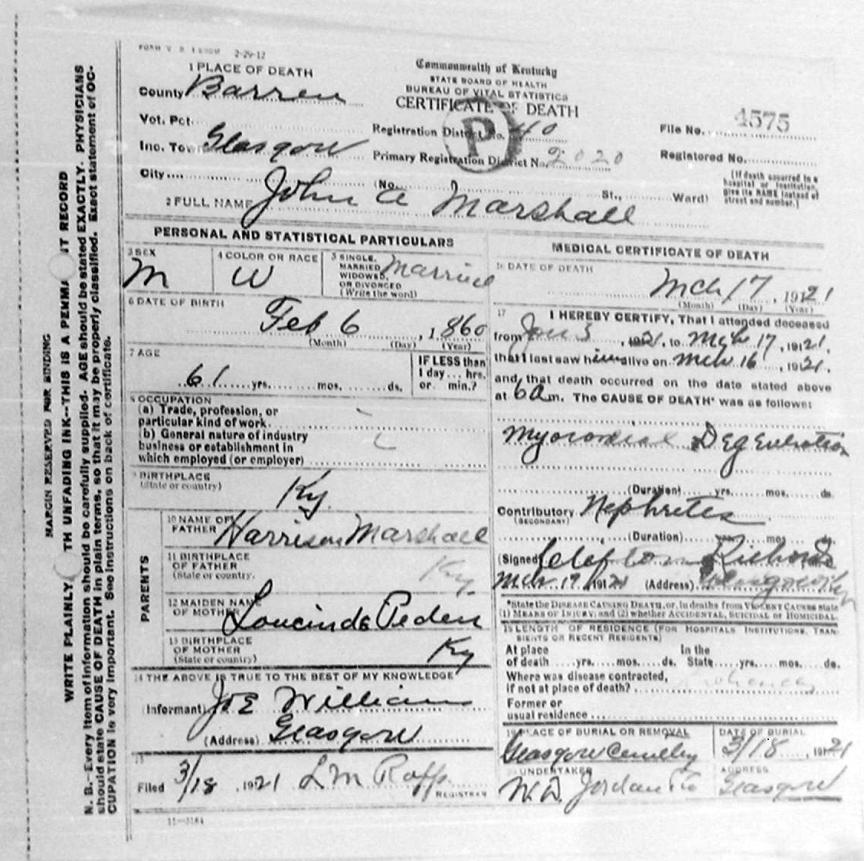 2-29-12
Commonwealth of Kentucky
STATE BOARD OF HEALTH
BUREAU OF VITAL STATISTICS
CERTIFICATE OF DEATH
1 PLACE OF DEATH
County Barren
Vot. Pct.
Inc. Tow Glasgow
City
Registration District No. 40
Primary Registration District No. 2020
P
File No. 4575
Registered No.
(No. St., Ward)
[If death occurred in a hospital or institution, give its NAME instead of street and number.]
2 FULL NAME John A Marshall
PERSONAL AND STATISTICAL PARTICULARS
3 SEX
M
4 COLOR OR RACE
W
5 SINGLE, MARRIED, WIDOWED, OR DIVORCED (Write the word)
Married
6 DATE OF BIRTH
Feb 6, 1860
(Month) (Day) (Year)
7 AGE
61 yrs. mos. ds.
IF LESS than 1 day... hrs. or min.?
8 OCCUPATION
(a) Trade, profession, or
particular kind of work
(b) General nature of industry
business or establishment in
which employed (or employer)
9 BIRTHPLACE
(State or country)
Ky.
PARENTS
10 NAME OF FATHER
Harrison Marshall
11 BIRTHPLACE OF FATHER
(State or country.
Ky.
12 MAIDEN NAME OF MOTHER
Loucinda Peden
13 BIRTHPLACE OF MOTHER
(State or country)
Ky
14 THE ABOVE IS TRUE TO THE BEST OF MY KNOWLEDGE
(Informant) Joe William
(Address) Glasgow
15
Filed 3/18, 1921 L M
REGISTRAR
11-3184
MEDICAL CERTIFICATE OF DEATH
16 DATE OF DEATH
Mch 17, 1921
(Month) (Day) (Year)
17 I HEREBY CERTIFY, That I attended deceased
from 1921, to Mch 17, 1921,
that I last saw him alive on Mch 16, 1921,
and that death occurred on the date stated above
at 6 am. The CAUSE OF DEATH* was as follows:
Myocardial Degeneration
(Duration) yrs. mos. ds.
Contributory Nephretis
(SECONDARY)
(Duration) yrs. mos. ds.
(Signed)
Mch 1921 (Address) Glasgow Ky
*State the DISEASE CAUSING DEATH, or, in deaths from VIOLENT CAUSES state
(1) MEANS OF INJURY; and (2) whether ACCIDENTAL, SUICIDAL or HOMICIDAL.
18 LENGTH OF RESIDENCE (FOR HOSPITALS INSTITUTIONS, TRANSIENTS OR RECENT RESIDENTS)
At place of death yrs. mos. ds.
In the State yrs. mos. ds.
Where was disease contracted,
if not at place of death?
Former or
usual residence
19 PLACE OF BURIAL OR REMOVAL
Glasgow Cemetery
DATE OF BURIAL
3/18, 1921
20 UNDERTAKER
W.D. Jordan
ADDRESS
Glasgow
MARGIN RESERVED FOR BINDING
WRITE PLAINLY TH UNFADING INK--THIS IS A PERMA T RECORD
N. B.--Every item of information should be carefully supplied. AGE should be stated EXACTLY. PHYSICIANS
should state CAUSE OF DEATH in plain terms, so that it may be properly classified. Exact statement of OC-
CUPATION is very important. See instructions on back of certificate.